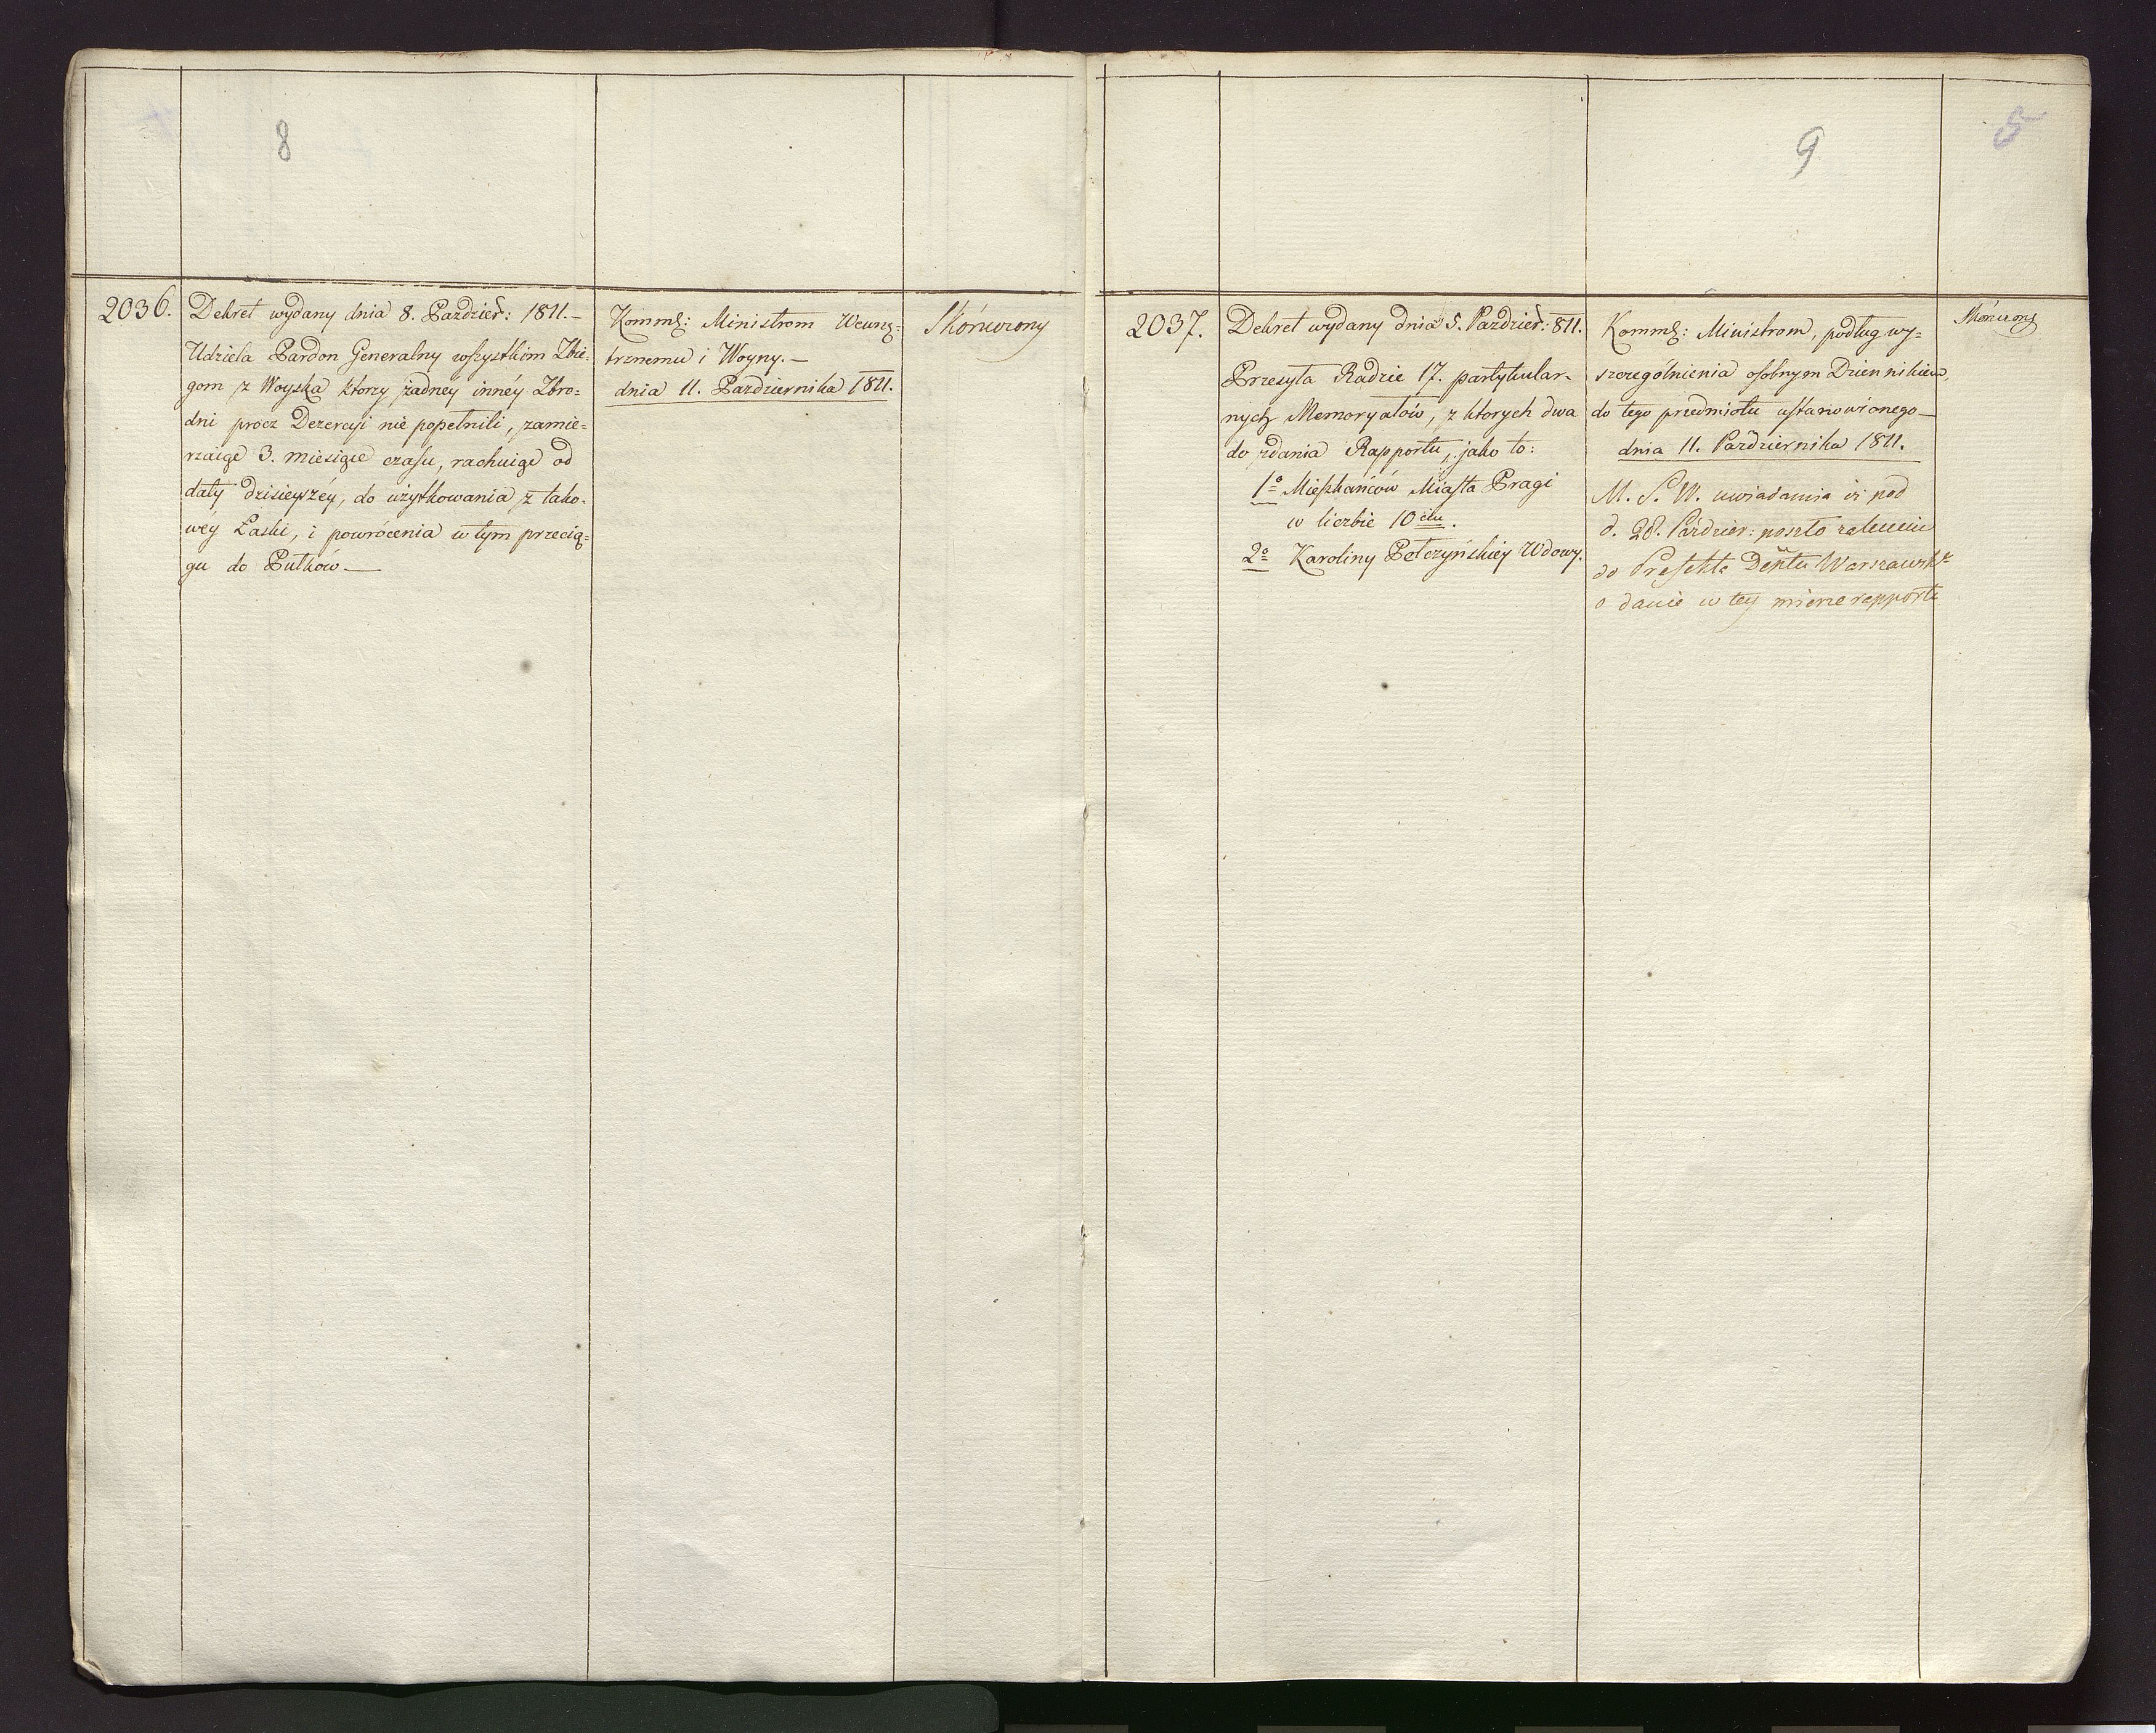 8
2036.
Dekret wydany dnia 8. Paździer: 1811.—
Udziela Pardon Generalny wszystkim Zbie-
gom z Woyska ktorzy żadnéy innéy Zbro-
dni procz Dezercyi nie popełnili, zamie-
rzaiąc 3. miesiące czasu, rachuiąc od
daty dzisieyszéy, do użytkowania z tako-
wéy Łaski, i powrócenia w tym przecią-
gu do Pułków.—
Komms: Ministrom Wewnę-
trznemu i Woyny.—
dnia 11. Października 1811.
Skończony
9
5
2037.
Dekret wydany dnia 5. Paździer: 811.
Przesyła Radzie 17. partykular-
nych Memoryałów, z ktorych dwa
do zdania Rapportu, jako to:
1o Mieszkańców Miasta Pragi
w liczbie 10ciu.
2o Karoliny Połczyńskiéy Wdowy.
Komms: Ministrom, podług wy-
szczególnienia osobnym Dziennikiem,
do tego przedmiotu ustanowionego—
dnia 11. Października 1811.
M. S. W. uwiadamia iż pod
d. 28. Paździer: poszło zalecenie
do Prefekta Depttu Warszawsko
o danie w tey mierze rapportu
Skończony